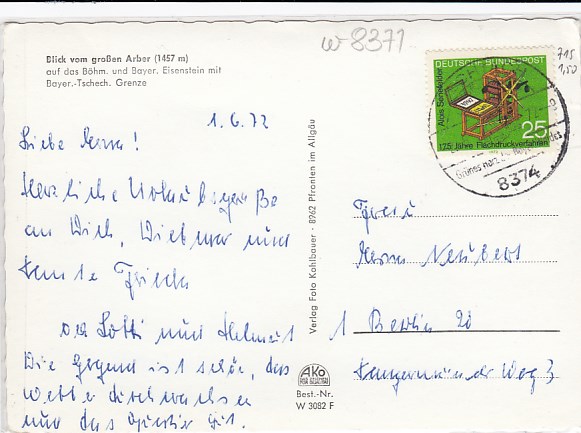 Blick vom großen Arber (1457 m)
auf das Böhm. und Bayer. Eisenstein mit
Bayer.-Tschech. Grenze
w-8371
715
1,50
DEUTSCHE BUNDESPOST
Alois Senefelder
25
175 Jahre Flachdruckverfahren
8374
1.6.72
Liebe Herma!
Herzliche Urlaubsgrüße
an Dich, Dietmar und
Tante Frieda
von Lotti und Helmut
Die Gegend ist schön, das
Wetter durchwachsen
und das Quartier gut.
Verlag Foto Kohlbauer · 8962 Pfronten im Allgäu
AKo
Best.-Nr.
W 3082 F
Frau
Herma Neubert
1 Berlin 20
Weg 3